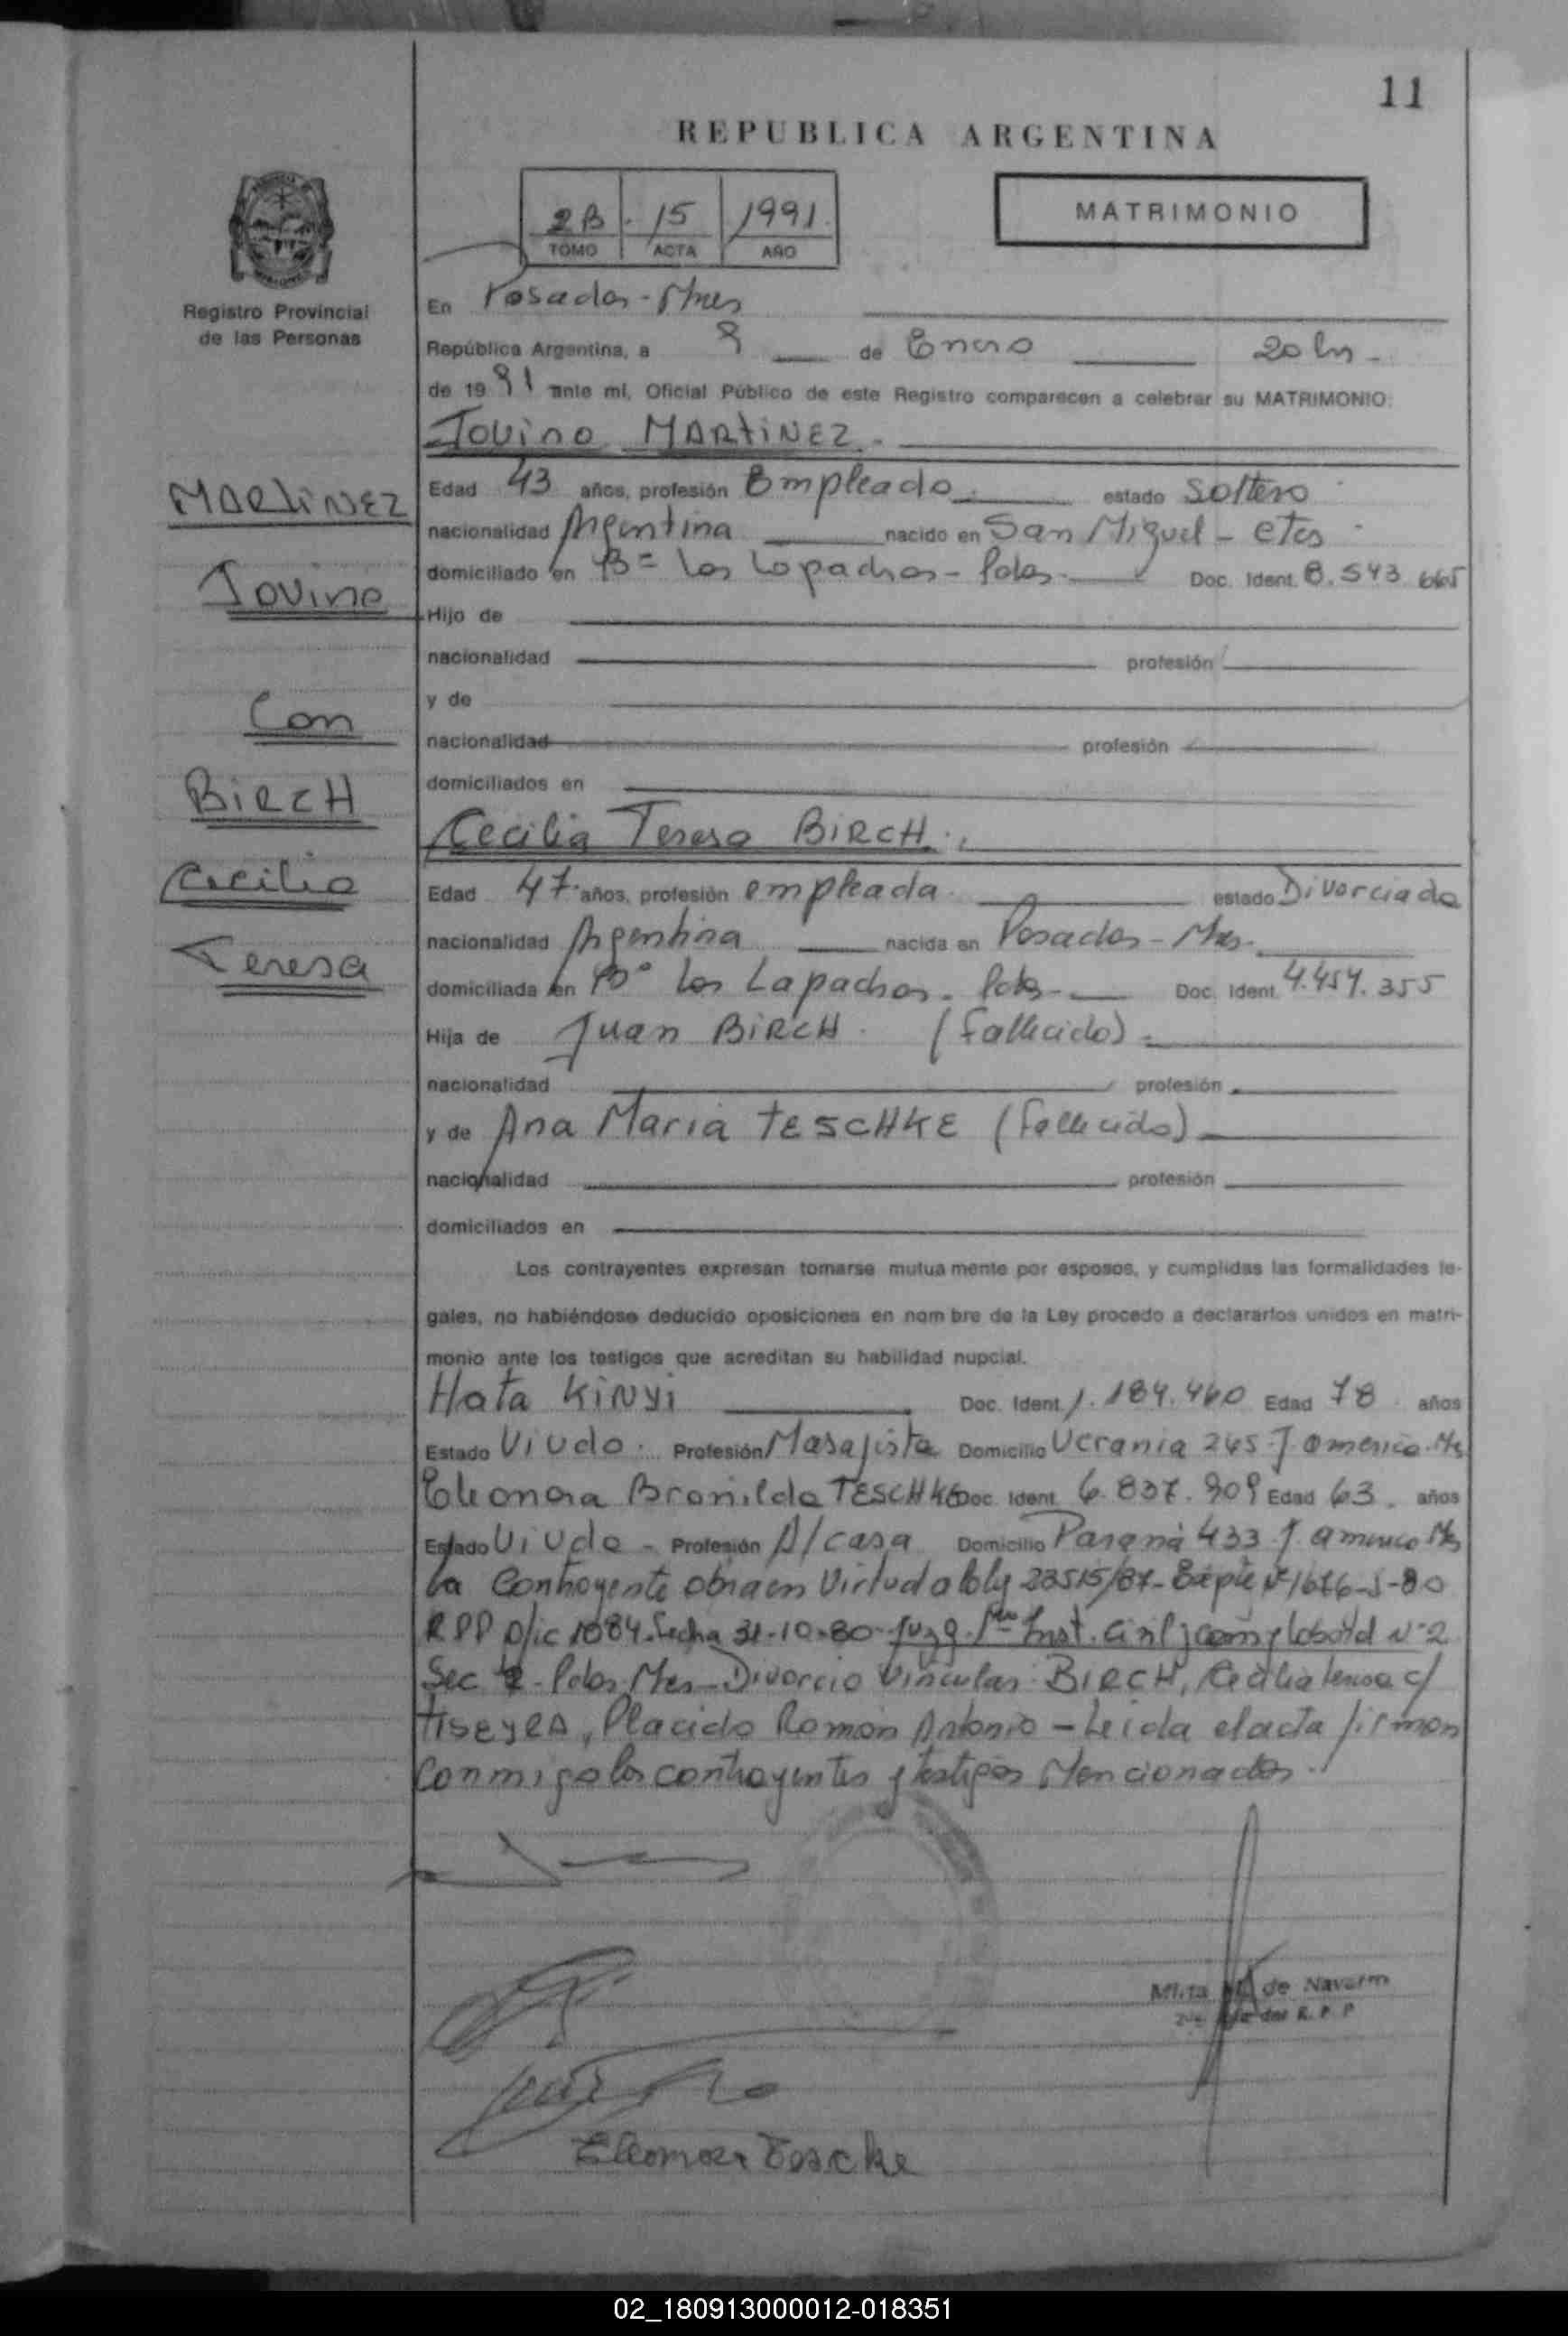 11
REPUBLICA ARGENTINA
2B 15 1991
TOMO ACTA AÑO
MATRIMONIO
Registro Provincial
de las Personas
En Posadas - Mnes
República Argentina, a 9 de Enero 20 hs -
de 1991 ante mí, Oficial Público de este Registro comparecen a celebrar su MATRIMONIO:
Jovino MARTINEZ.
MARTINEZ
Jovino
Con
BIRCH
Cecilia
Teresa
Edad 43 años, profesión Empleado estado Soltero
nacionalidad Argentina nacido en San Miguel - Ctes
domiciliado en Bº Los Lapachos - Pdas. Doc. Ident. 8.543.665
Hijo de
nacionalidad profesión
y de
nacionalidad profesión
domiciliados en
Cecilia Teresa BIRCH.
Edad 47 años, profesión empleada estado Divorciada
nacionalidad Argentina nacida en Posadas - Mnes.
domiciliada en Bº Los Lapachos - Pdas Doc. Ident. 4.454.355
Hija de Juan BIRCH. (fallecido)
nacionalidad profesión
y de Ana Maria TESCHKE (fallecida)
nacionalidad profesión
domiciliados en
Los contrayentes expresan tomarse mutuamente por esposos, y cumplidas las formalidades le-
gales, no habiéndose deducido oposiciones en nombre de la Ley procedo a declararlos unidos en matri-
monio ante los testigos que acreditan su habilidad nupcial.
Hata KINYI Doc. Ident. 1.184.460 Edad 78 años
Estado Viudo. Profesión Masajista Domicilio Ucrania 245 J. America. Ms
Eleonora Bronilda TESCHKE Doc. Ident. 6.837.909 Edad 63. años
Estado Viuda - Profesión A/casa Domicilio Paraná 433 J. America Ms
La Contrayente obra en Virtud a la ley 23515/87 - Expte Nº 1676-J-80
RPP Ofic 1084. fecha 31-10-80 - Juzg. 1ra Inst. Civil, Com y Laboral Nº 2
Sec 2 - Pdas Mnes - Divorcio Vincular: BIRCH, Cecilia Teresa c/
, Placido Ramón Antonio - Leida el acta firman
Conmigo los contrayentes y testigos Mencionados.
de Navarro
del R. P. P.
Eleonora Tescke
02_180913000012-018351